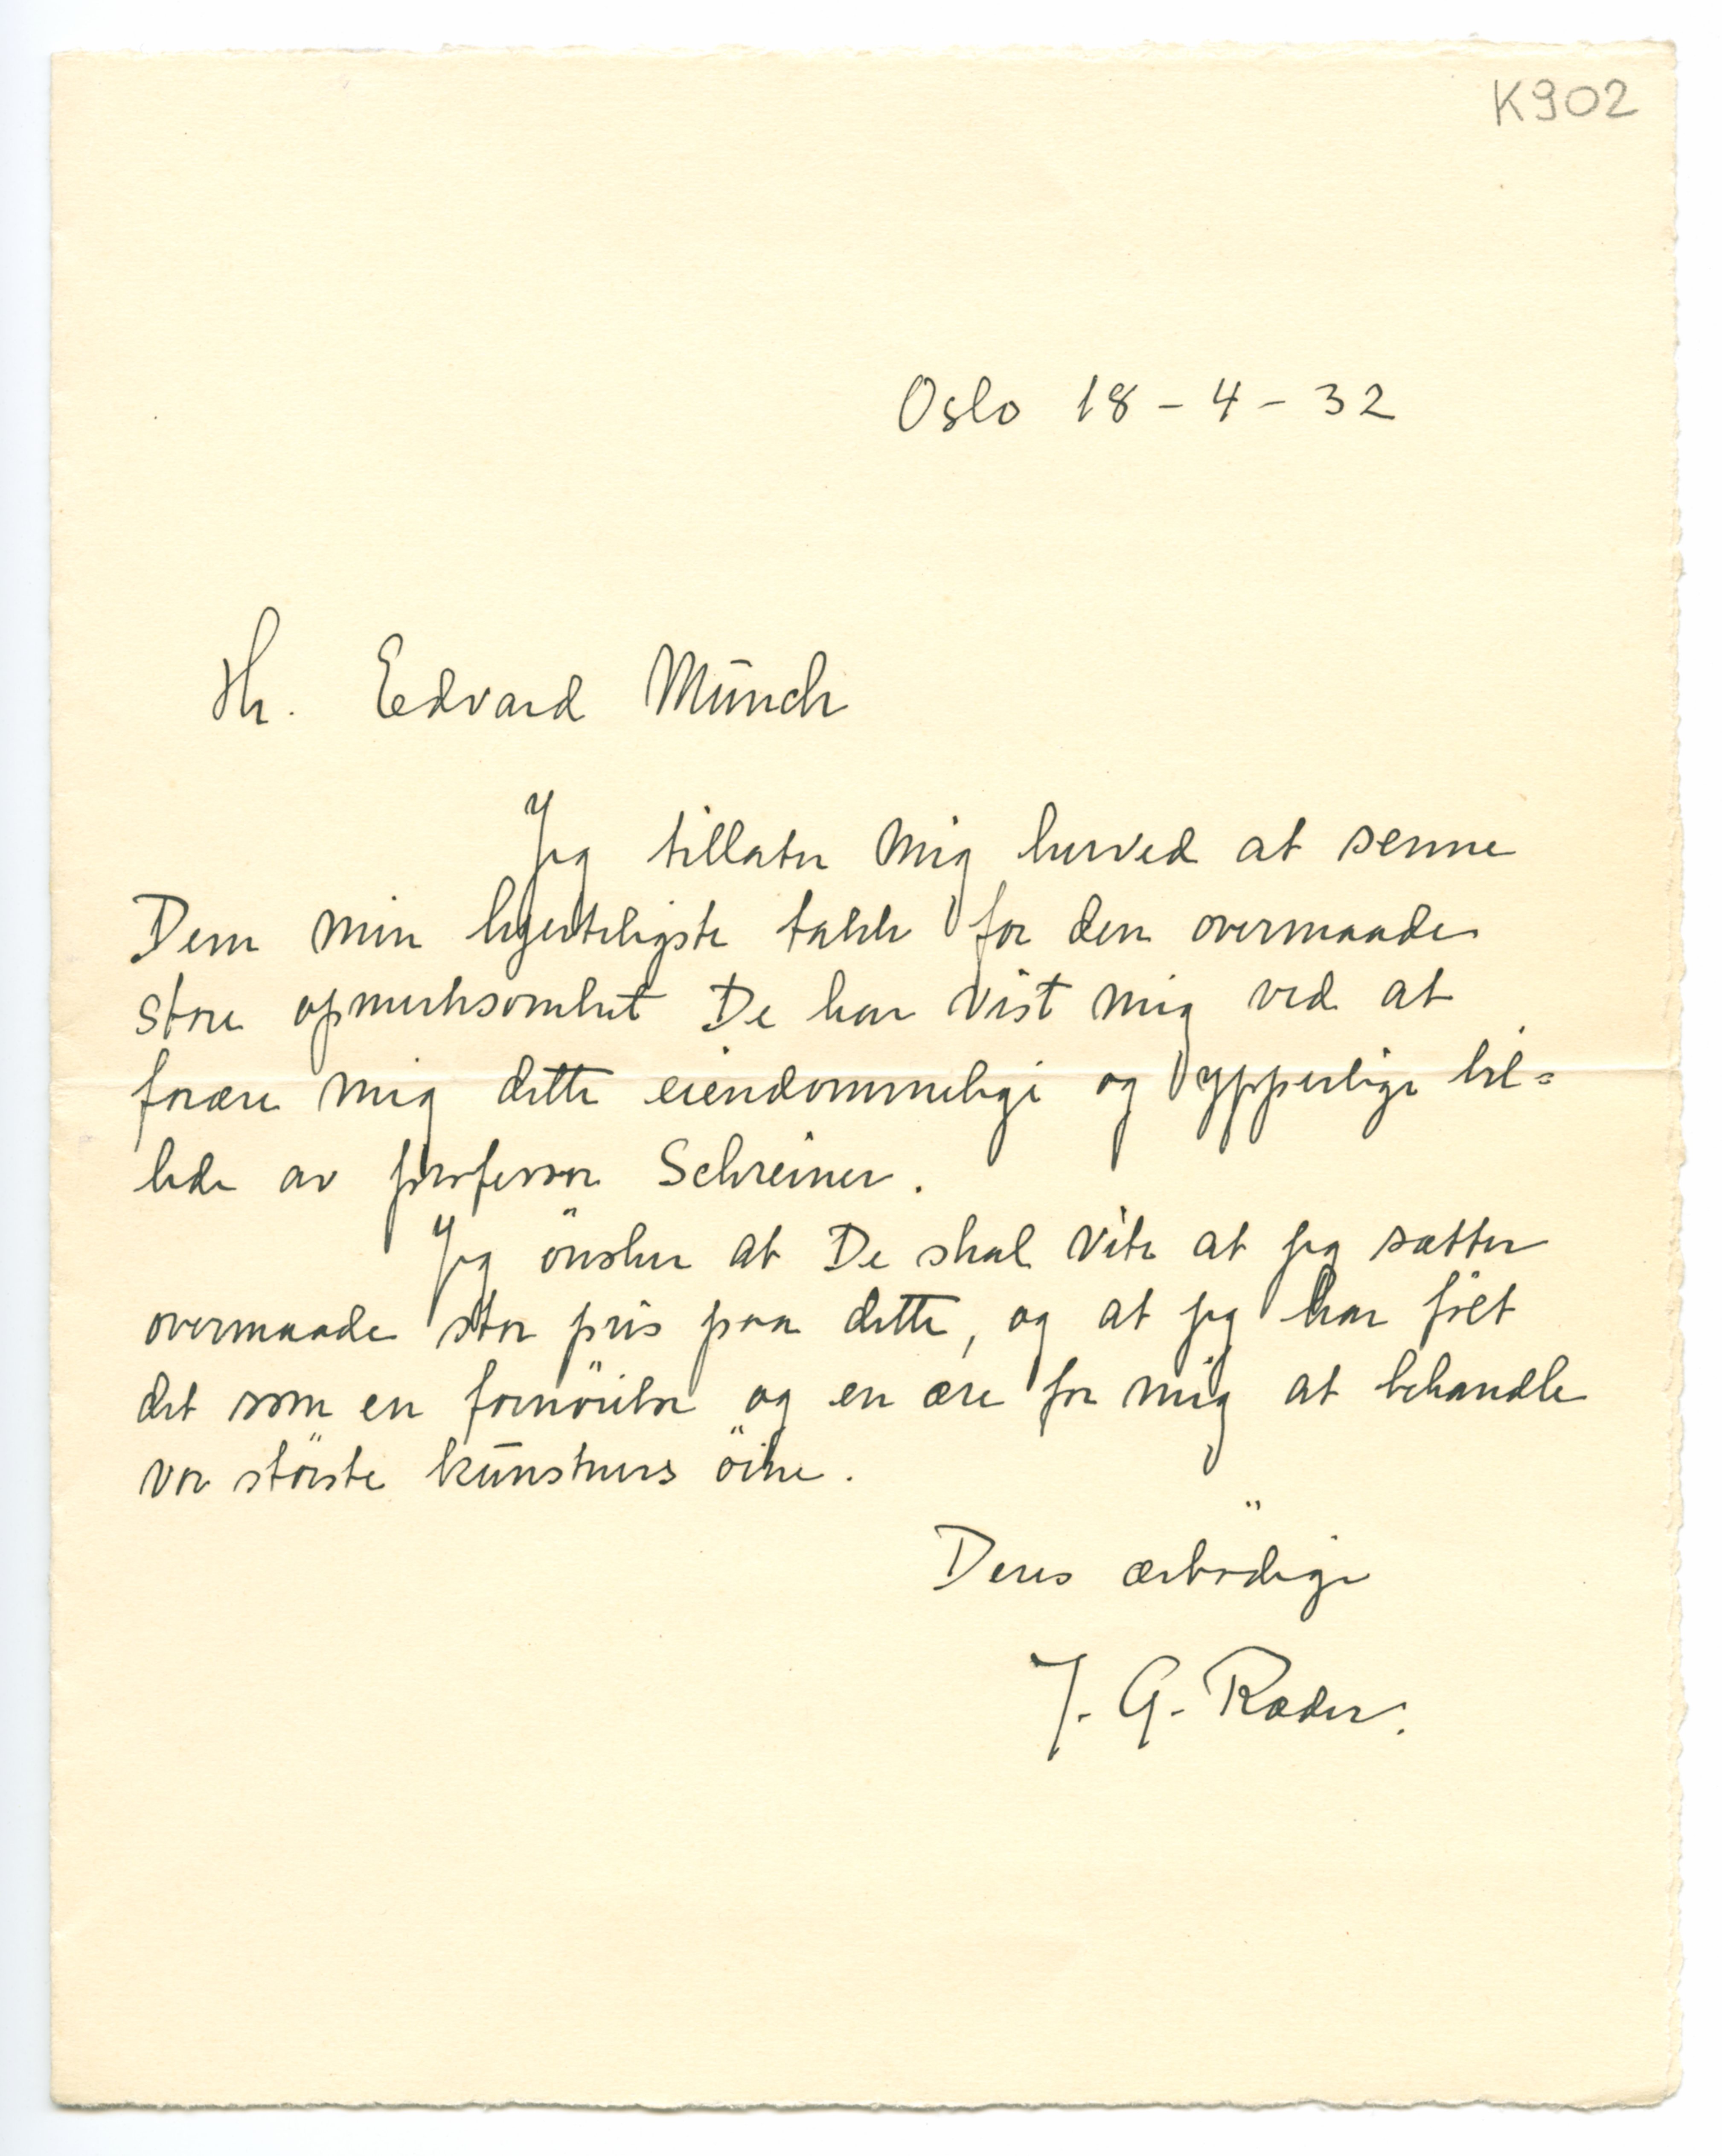 K902
Oslo 18-4-32
Hr. Edvard Munch
Jeg tillater mig herved at senne
Dem min hjerteligste takk for den overmaade
store opmerksomhet De har vist mig ved at
forære mig dette eiendommelige og ypperlige bil=
lede av professor Schreiner.
Jeg önsker at De skal vite at jeg sætter
overmaade stor pris paa dette, og at jeg har fölt
det som en fornöielse og en ære for mig at behandle
vor störste kunstners öine.
Deres ærbödige
J. G. Ræder.